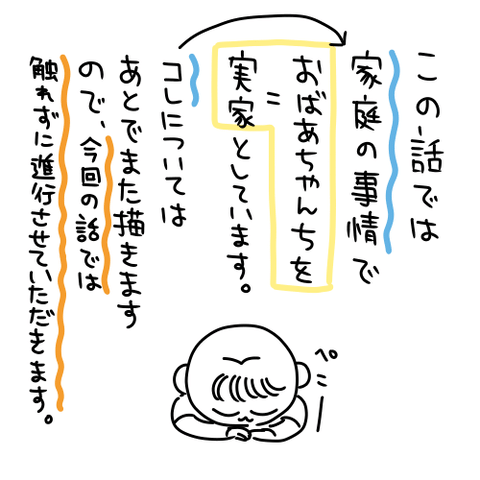 この話では
家庭の事情で
おばあちゃんちを
=
実家としています。
コレについては
あとでまた描きます
ので、今回の話では
触れずに進行させていただきます。
ペコー